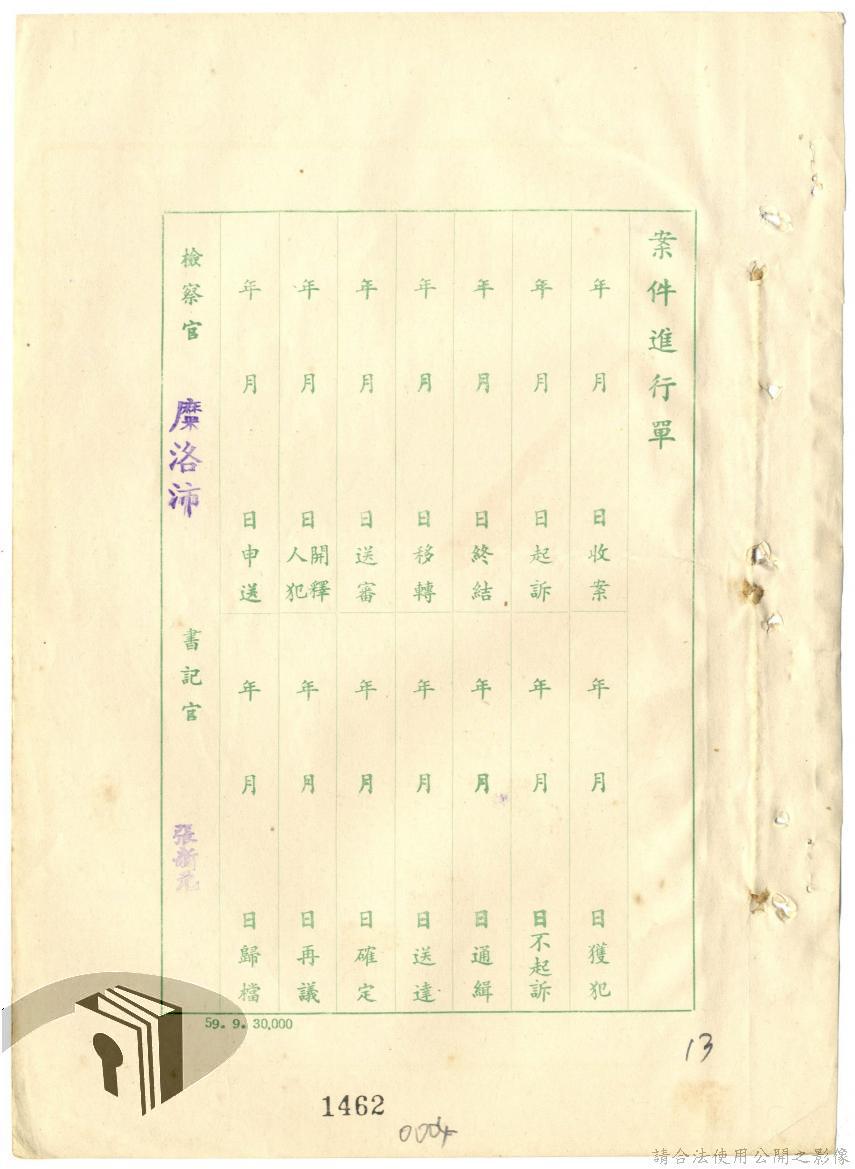 案件進行單
年 月 日收案
年 月 日獲犯
年 月 日起訴
年 月 日不起訴
年 月 日終結
年 月 日通緝
年 月 日移轉
年 月 日送達
年 月 日送審
年 月 日確定
年 月 日開釋人犯
年 月 日再議
年 月 日申送
年 月 日歸檔
檢察官 糜洛沛 書記官 張新元
59. 9. 30,000
13
1462
004
請合法使用公開之影像